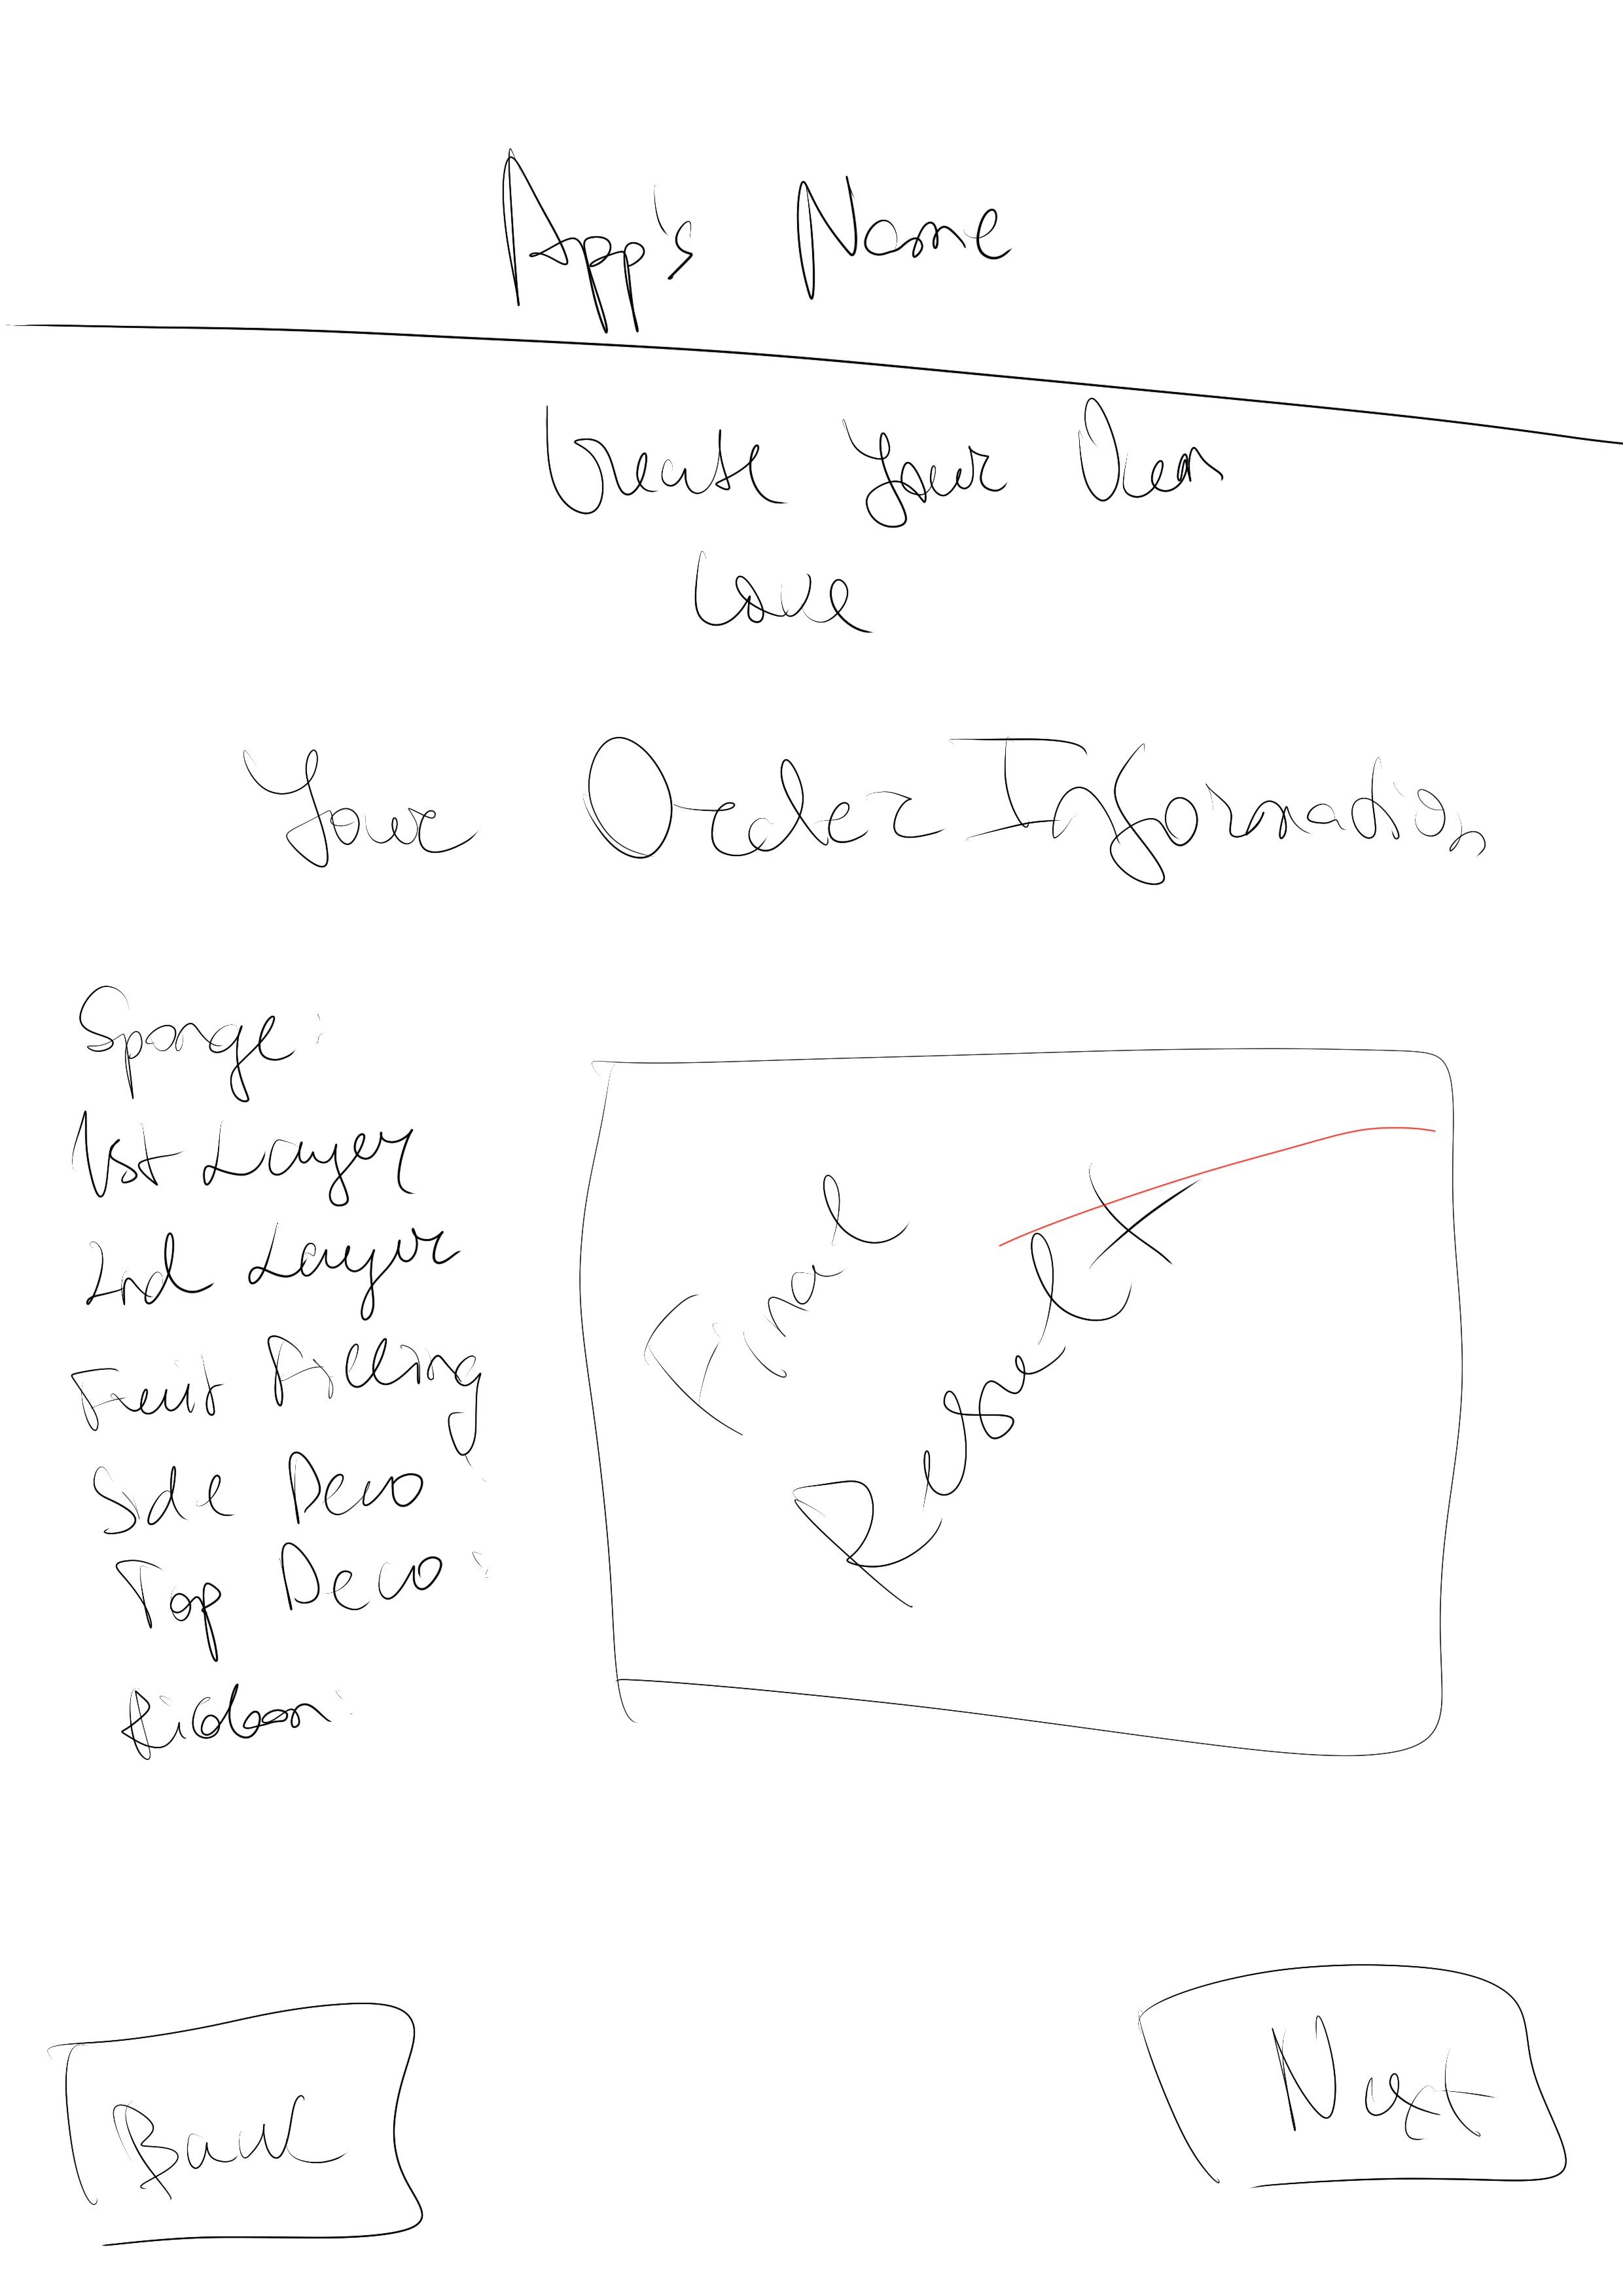 App's Name
Create Your Own
Cake
Your Order Information
Sponge:
1st Layer
2nd Layer
Fruit Filling
Side Deco
Top Deco:
Ribbon:
Final
Result
Back
Next